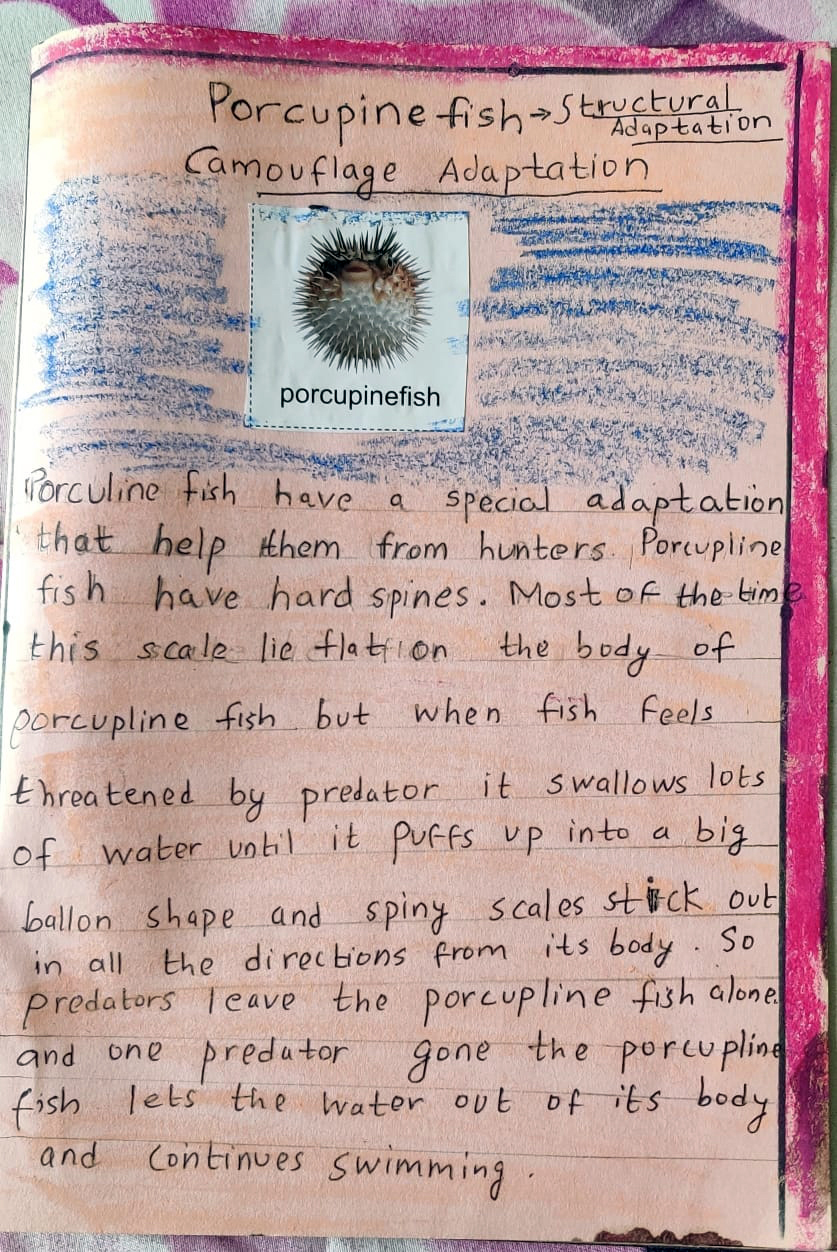 Porcupine fish → Structural
Adaptation
Camouflage Adaptation
porcupinefish
Porculine fish have a special adaptation
that help them from hunters. Porcupline
fish have hard spines. Most of the time
this scale lie flat on the body of
porcupline fish but when fish feels
threatened by predator it swallows lots
of water until it puffs up into a big
ballon shape and spiny scales stick out
in all the directions from its body. So
predators leave the porcupline fish alone
and one predator gone the porcupline
fish lets the water out of its body
and continues swimming.